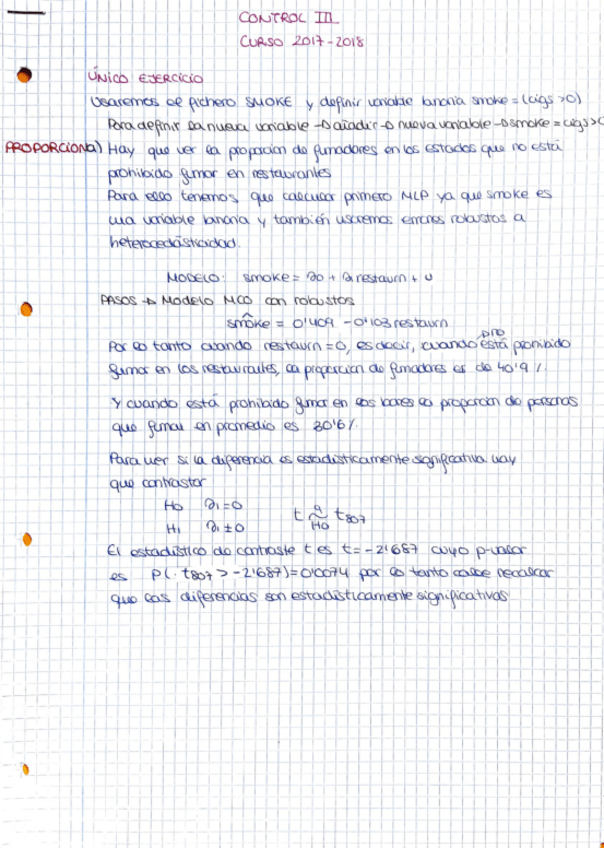 CONTROL III
CURSO 2017-2018
ÚNICO EJERCICIO
Usaremos el fichero SMOKE y definir variable binaria smoke = (cigs >0)
Para definir la nueva variable → añadir → nueva variable → smoke = cigs >0
PROPORCION a) Hay que ver la proporcion de fumadores en los estados que no está
prohibido fumar en restaurantes
Para ello tenemos que calcular primero MLP ya que smoke es
una variable binaria y también usaremos errores robustos a
heterocedasticidad.
MODELO: smoke = ∂0 + ∂1 restaurn + u
PASOS → Modelo MCO con robustos
smôke = 0'409 - 0'103 restaurn
Por lo tanto cuando restaurn = 0, es decir, cuando está prohibido
fumar en los restaurantes, la proporcion de fumadores es de 40'9 %.
Y cuando está prohibido fumar en los bares la proporcion de personas
que fuman en promedio es 30'6%
Para ver si la diferencia es estadísticamente significativa hay
que contrastar
H0 ∂1 = 0 t a~ H0 t807
H1 ∂1 ≠ 0
El estadístico de contraste t es t = -2'687 cuyo p-valor
es P(· t807 > -2'687) = 0'0074 por lo tanto cabe recalcar
que las diferencias son estadísticamente significativas